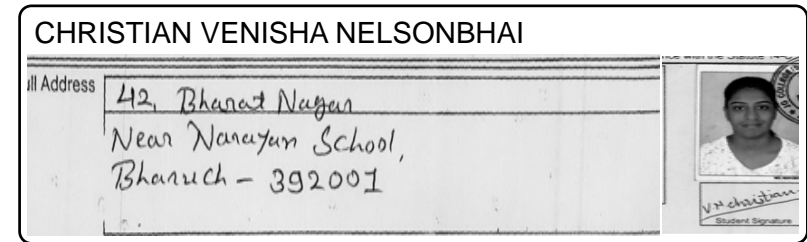 CHRISTIAN VENISHA NELSONBHAI
ull Address
42, Bharat Nagar
Near Narayan School,
Bharuch - 392001
nce with the Statute
V N christian
Student Signature